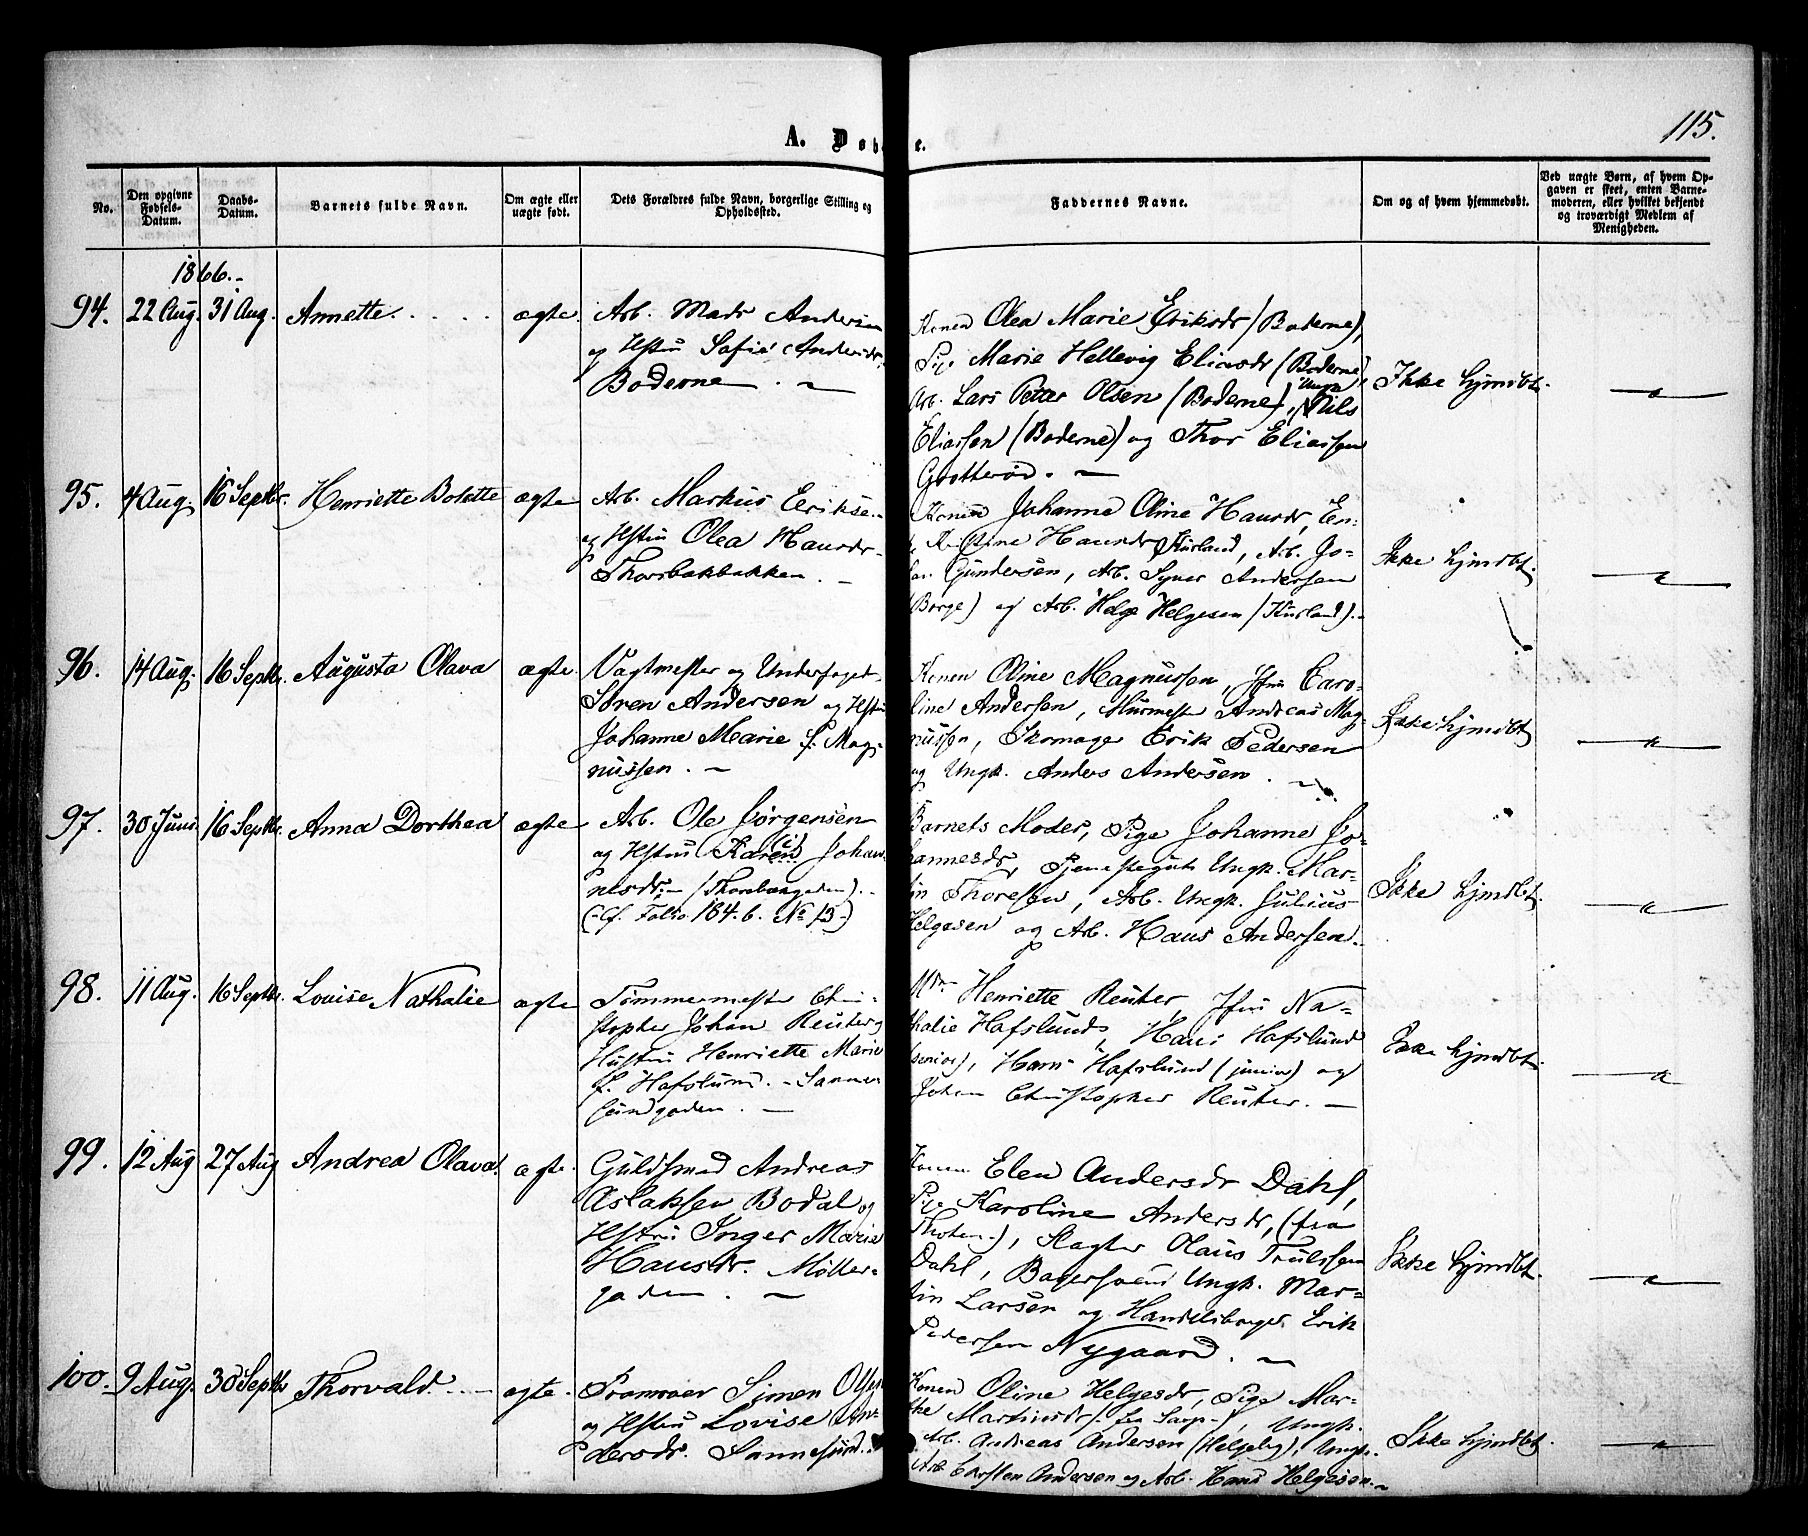 115.
A. Døbte.
No.
Den opgivne Fødsels-Datum.
Daabs-Datum.
Barnets fulde Navn.
Om ægte eller uægte født.
Dets Forældres fulde Navn, borgerlige Stilling og Opholdssted.
Faddernes Navne.
Om og af hvem hjemmedøbt.
Ved uægte Børn, af hvem Opgaven er skeet, enten Barnemoderen, eller hvilket bekjendt og troværdigt Medlem af Menigheden.
1866.-
94. 22 Aug. 31 Aug. Annette. ægte.
Arb. Mads Andersen
og Hstru Safie Andersdr.
Boderne. -
Konen Olea Marie Eriksdr (Boderne),
Pige Marie Hellevig Eliasdr (Boderne),
Arb. Lars Petter Olsen (Boderne), Ungk. Nils
Eliassen (Boderne) og Thor Eliassen
Grotterød. -
Ikke hjmdbt.
95. 4 Aug. 16 Septbr. Henriette Bolette ægte
Arb. Markus Erikse-
og Hstru Olea Hansdr-
Thorsbakbakken. -
Konen Johanne Oline Hansdr, En-
ke Kristine Hansdr Kurland, Arb. Jo-
han Gundersen, Arb. Syver Andersen
(Borge) og Arb. Helge Helgesen (Kurland).-
Ikke hjmdbt.
96. 14 Aug. 16 Septbr. Augusta Olava ægte.
Vagtmester og Underfoget
Søren Andersen og Hstru
Johanne Marie f. Mag-
nussen. -
Konen Oline Magnussen, Jfru Caro-
line Andersen, Murmester Andreas Mag-
nussen, Skomager Erik Pedersen
og Ungk. Anders Andersen.
Ikke hjmdbt
97. 30 Juni 16 Septbr. Anna Dorthea ægte
Arb. Ole Jørgensen
og Hstru Karen (!) Johan-
nesdr.- (Thorsbængaden).-
(-Cf. Folio 184.b. No 13-)
Barnets Moder, Pige Johanne Jo-
hannesdr, Tjenestegut Ungk. Mar-
tin Thoresen, Arb. Ungk. Julius
Helgesen og Arb. Hans Andersen.
Ikke hjmdbt.
98. 11 Aug. 16 Septbr. Louise Nathalie ægte
Tømmermester Chri-
stopher Johan Reuter og
Hustru Henriette Marie
f. Hafslund. - Sanne-
sundgaden. -
Mdm Henriette Reuter, Jfru Na-
thalie Hafslund, Hans Hafslund
(senior), Hans Hafslund (junior) og
Johan Christopher Reuter. -
Ikke hjmdbt.
99. 12 Aug 27 Aug Andrea Olava. ægte.
Guldsmed Andreas
Aslaksen Bodal og
Hstru Inger Marie
Hansdr. Møller-
gaden. -
Konen Elen Andersdr Dahl,
Pige Karoline Andersdr, (fra
Thoten-), Slagter Olaus Trulssen
Dahl, Bagersvend Ungk. Mar-
tin Larsen og Handelsborger Erik
Pedersen Nygaard. -
Ikke hjmdbt.
100. 9 Aug. 30 Septbr Thorvald. ægte.
Pramroer Simen Olsen
og Hstru Lovise An-
dersdr. Sannesund.
Konen Oline Helgesdr, Pige Mar-
the Martinsdr (fra Sarp-), Ungk.
Arb. Andreas Andersen (Helgeby), Ungk.
Arb. Carsten Andersen og Arb. Hans Helgesen.-
Ikke hjmdbt.